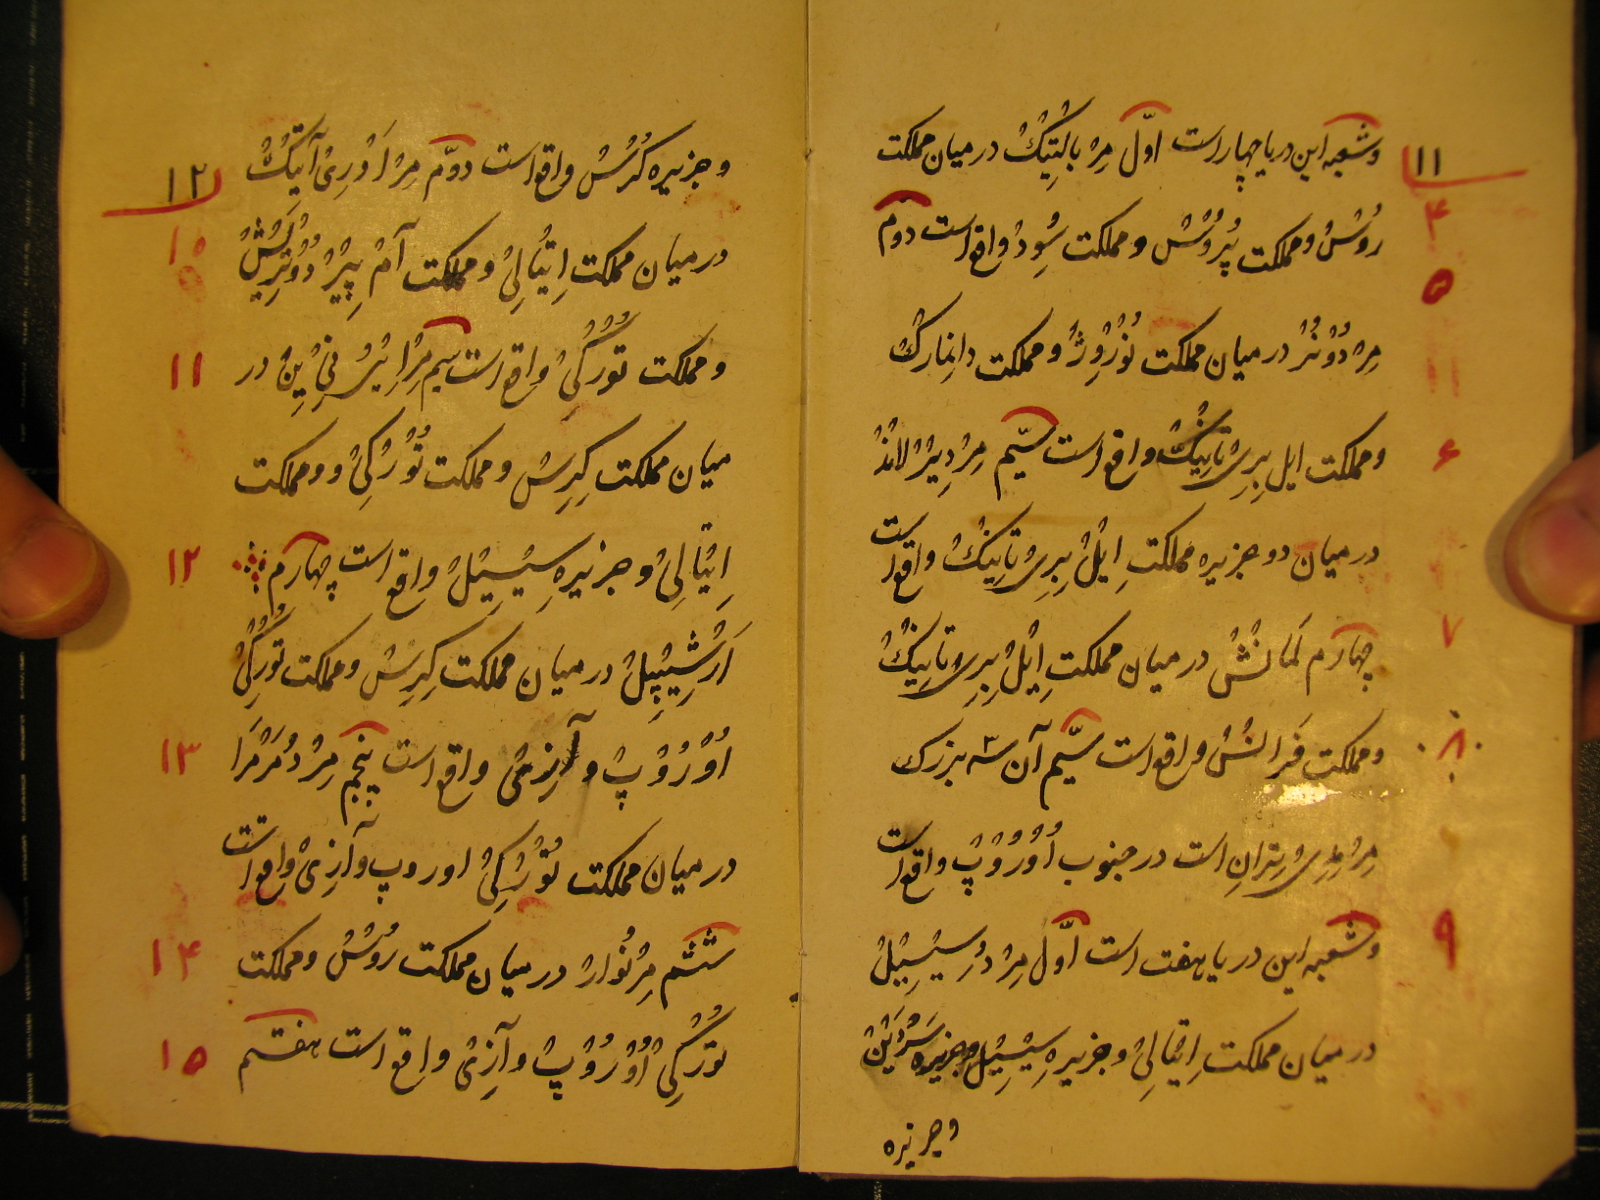 ۱۱
وشعبه این دریا چهار است اوّل مِرْ بالْتِیْکْ در میان مملکت
۴
رُوْسْ و مملکت پُرُوْسْ و مملکت سُودْ واقع است دوّم
۵
مِرْ دُوْ نُرْ در میان مملکت نُوْرْوِژْ و مملکت دانِمارکْ
و مملکت ایل بِرِیْ تانِیْکْ واقع است سیّم مِرْ دِیْرْلانْدْ
۶
در میان دو جزیره مملکتِ اِیْلْ بِرِیْ تانِیْکْ واقع است
چهارم لَمانْشْ در میان مملکتِ اِیْلْ بِرِیْ تانِیْکْ
۷
و مملکت فَرانْسْ واقع است سیّم آن ۳ بزرک
۸
مِرْ مِدِیْ تِرانِ است در جنوب اُوْرُوْپْ واقع است
وشعبه این دریا هفت است اوّل مِرْ دُ سِیْسِیْلْ
۹
در میان مملکت اِیْتالِیْ و جزیرهِ سِیْسِیْلْ و جزیره سَرْدَیْنْ
و جزیره
۱۲
و جزیره کُرْسْ واقع است دوّم مِرْ اَدْرِیْ آتِیْکْ
۱۰
در میان مملکت اِیْتالِیْ و مملکت آمْ پِیْرْ دُوْتْرِیْشْ
و مملکت تُوْرْکِیْ واقع است سیم مِرْ اِیْیُ نِیْ یِنْ در
۱۱
میان مملکت کِرِسْ و مملکت تُوْرْکِیْ و و مملکت
اِیْتالِیْ و جزیرهِ سِیْسِیْلْ واقع است چهارم
۱۲
اَرْشِیْپِلْ در میان مملکت کِرِسْ و مملکت تُوْرْکِیْ
اُوْرُوْپْ و آزِیْ واقع است پنجم مِرْ دُ مَرْمَرا
۱۳
در میان مملکت تُوْرْکِیْ اوروپ و آزِیْ واقع است
ششم مِرْ نُوارْ در میان مملکت رُوْسْ و مملکت
۱۴
تُوْرْکِیْ اُوْرُوْپْ و آزِیْ واقع است هفتم
۱۵